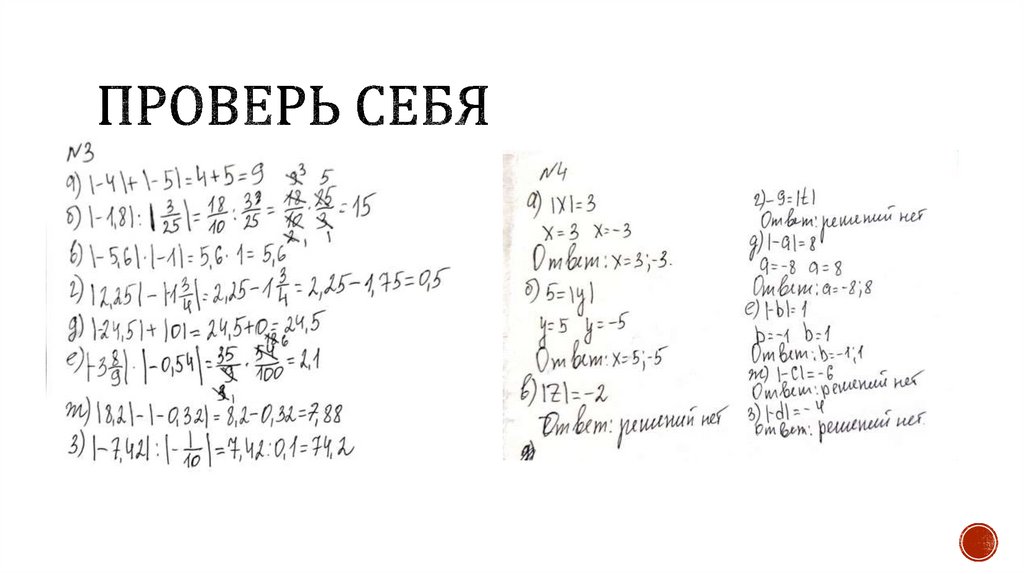 ПРОВЕРЬ СЕБЯ
№3
а) |-4| + |-5| = 4+5 = 9
б) |-1,8| : |3/25| = 18/10 : 33/25 = 18/10 · 25/3 = 15
в) |-5,6| · |-1| = 5,6 · 1 = 5,6
г) |2,25| - |-1 3/4| = 2,25 - 1 3/4 = 2,25 - 1,75 = 0,5
д) |-24,5| + |0| = 24,5+0 = 24,5
е) |-3 8/9| · |-0,54| = 35/9 · 54/100 = 2,1
ж) |8,2| - |-0,32| = 8,2-0,32=7,88
з) |-7,42| : |-1/10| = 7,42:0,1=74,2
№4
а) |x|=3
x=3 x=-3
Ответ: x=3;-3.
б) 5=|y|
y=5 y=-5
Ответ: x=5;-5
в) |Z|=-2
Ответ: решений нет
г) -9=|t|
Ответ: решений нет
д) |-a|=8
a=-8 a=8
Ответ: a=-8;8
е) |-b|=1
b=-1 b=1
Ответ: b=-1;1
ж) |-c|=-6
Ответ: решений нет
з) |-d|=-4
Ответ: решений нет.